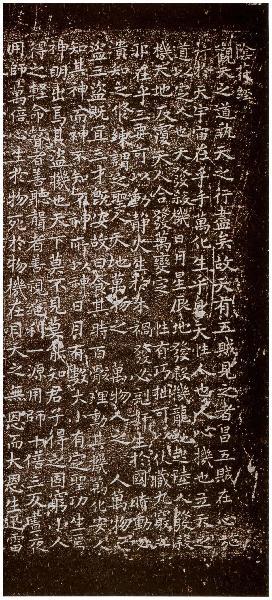 陰符經
觀天之道執天之行盡矣故天有五賊見之者昌五賊在心施
行於天宇宙在乎手萬化生乎身天性人也人心機也立天之
道以定人也天發殺機日月星辰地發殺機龍蛇起陸人發殺
機天地反覆天人合發萬變定基性有巧拙可以伏藏九竅之
邪在乎三要可以動靜火生於木禍發必剋姧生於國時動必
潰知之修練謂之聖人天地萬物之盜萬物人之盜人萬物之
盜三盜既宜三才既安故曰食其時百骸理動其機萬化安人
知其神而神不知不神所以神日月有數大小有定聖功生焉
神明出焉其盜機也天下莫不見莫能知君子得之固窮小人
得之輕命瞽者善聽聾者善視絕利一源用師十倍三反晝夜
用師萬倍心生於物死於物機在目天之無恩而大恩生迅雷